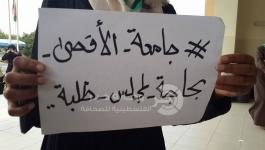 # جامعة_الأقصى_
بحاجة_لمجلس_طلبة
الفلسطينية للصحافة